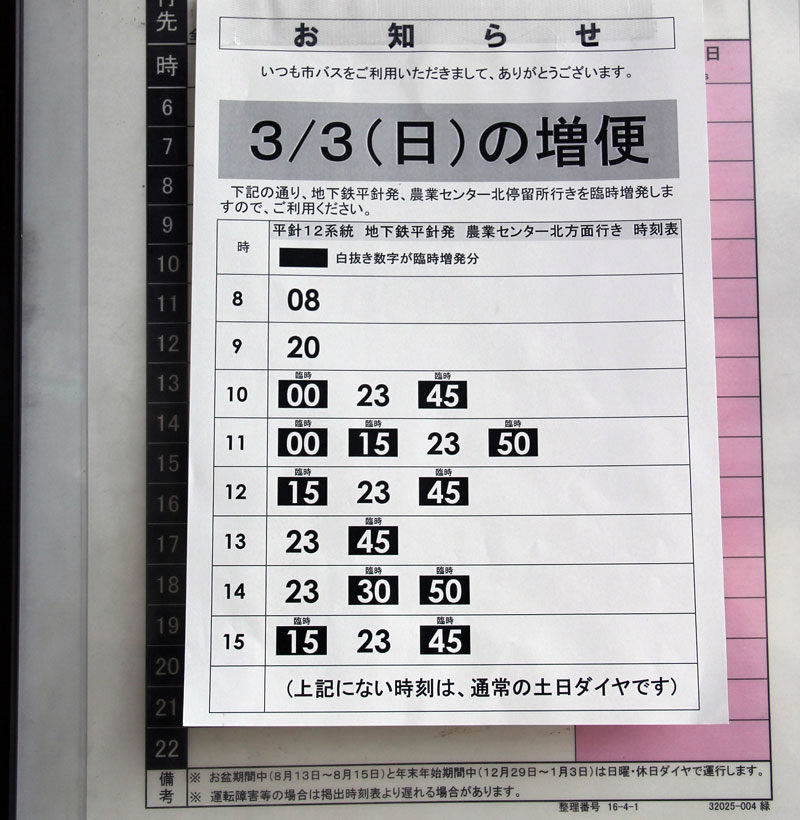 行先
時
日
6
7
8
9
10
11
12
13
14
15
16
17
18
19
20
21
22
お知らせ
いつも市バスをご利用いただきまして、ありがとうございます。
3/3(日)の増便
下記の通り、地下鉄平針発、農業センター北停留所行きを臨時増発しま
すので、ご利用ください。
時 平針12系統 地下鉄平針発 農業センター北方面行き 時刻表
白抜き数字が臨時増発分
8 08
9 20
臨時 臨時
10 00 23 45
臨時 臨時 臨時
11 00 15 23 50
臨時 臨時
12 15 23 45
臨時
13 23 45
臨時 臨時
14 23 30 50
臨時 臨時
15 15 23 45
(上記にない時刻は、通常の土日ダイヤです)
備考
※ お盆期間中(8月13日~8月15日)と年末年始期間中(12月29日~1月3日)は日曜・休日ダイヤで運行します。
※ 運転障害等の場合は掲出時刻表より遅れる場合があります。
整理番号 16-4-1 32025-004 緑